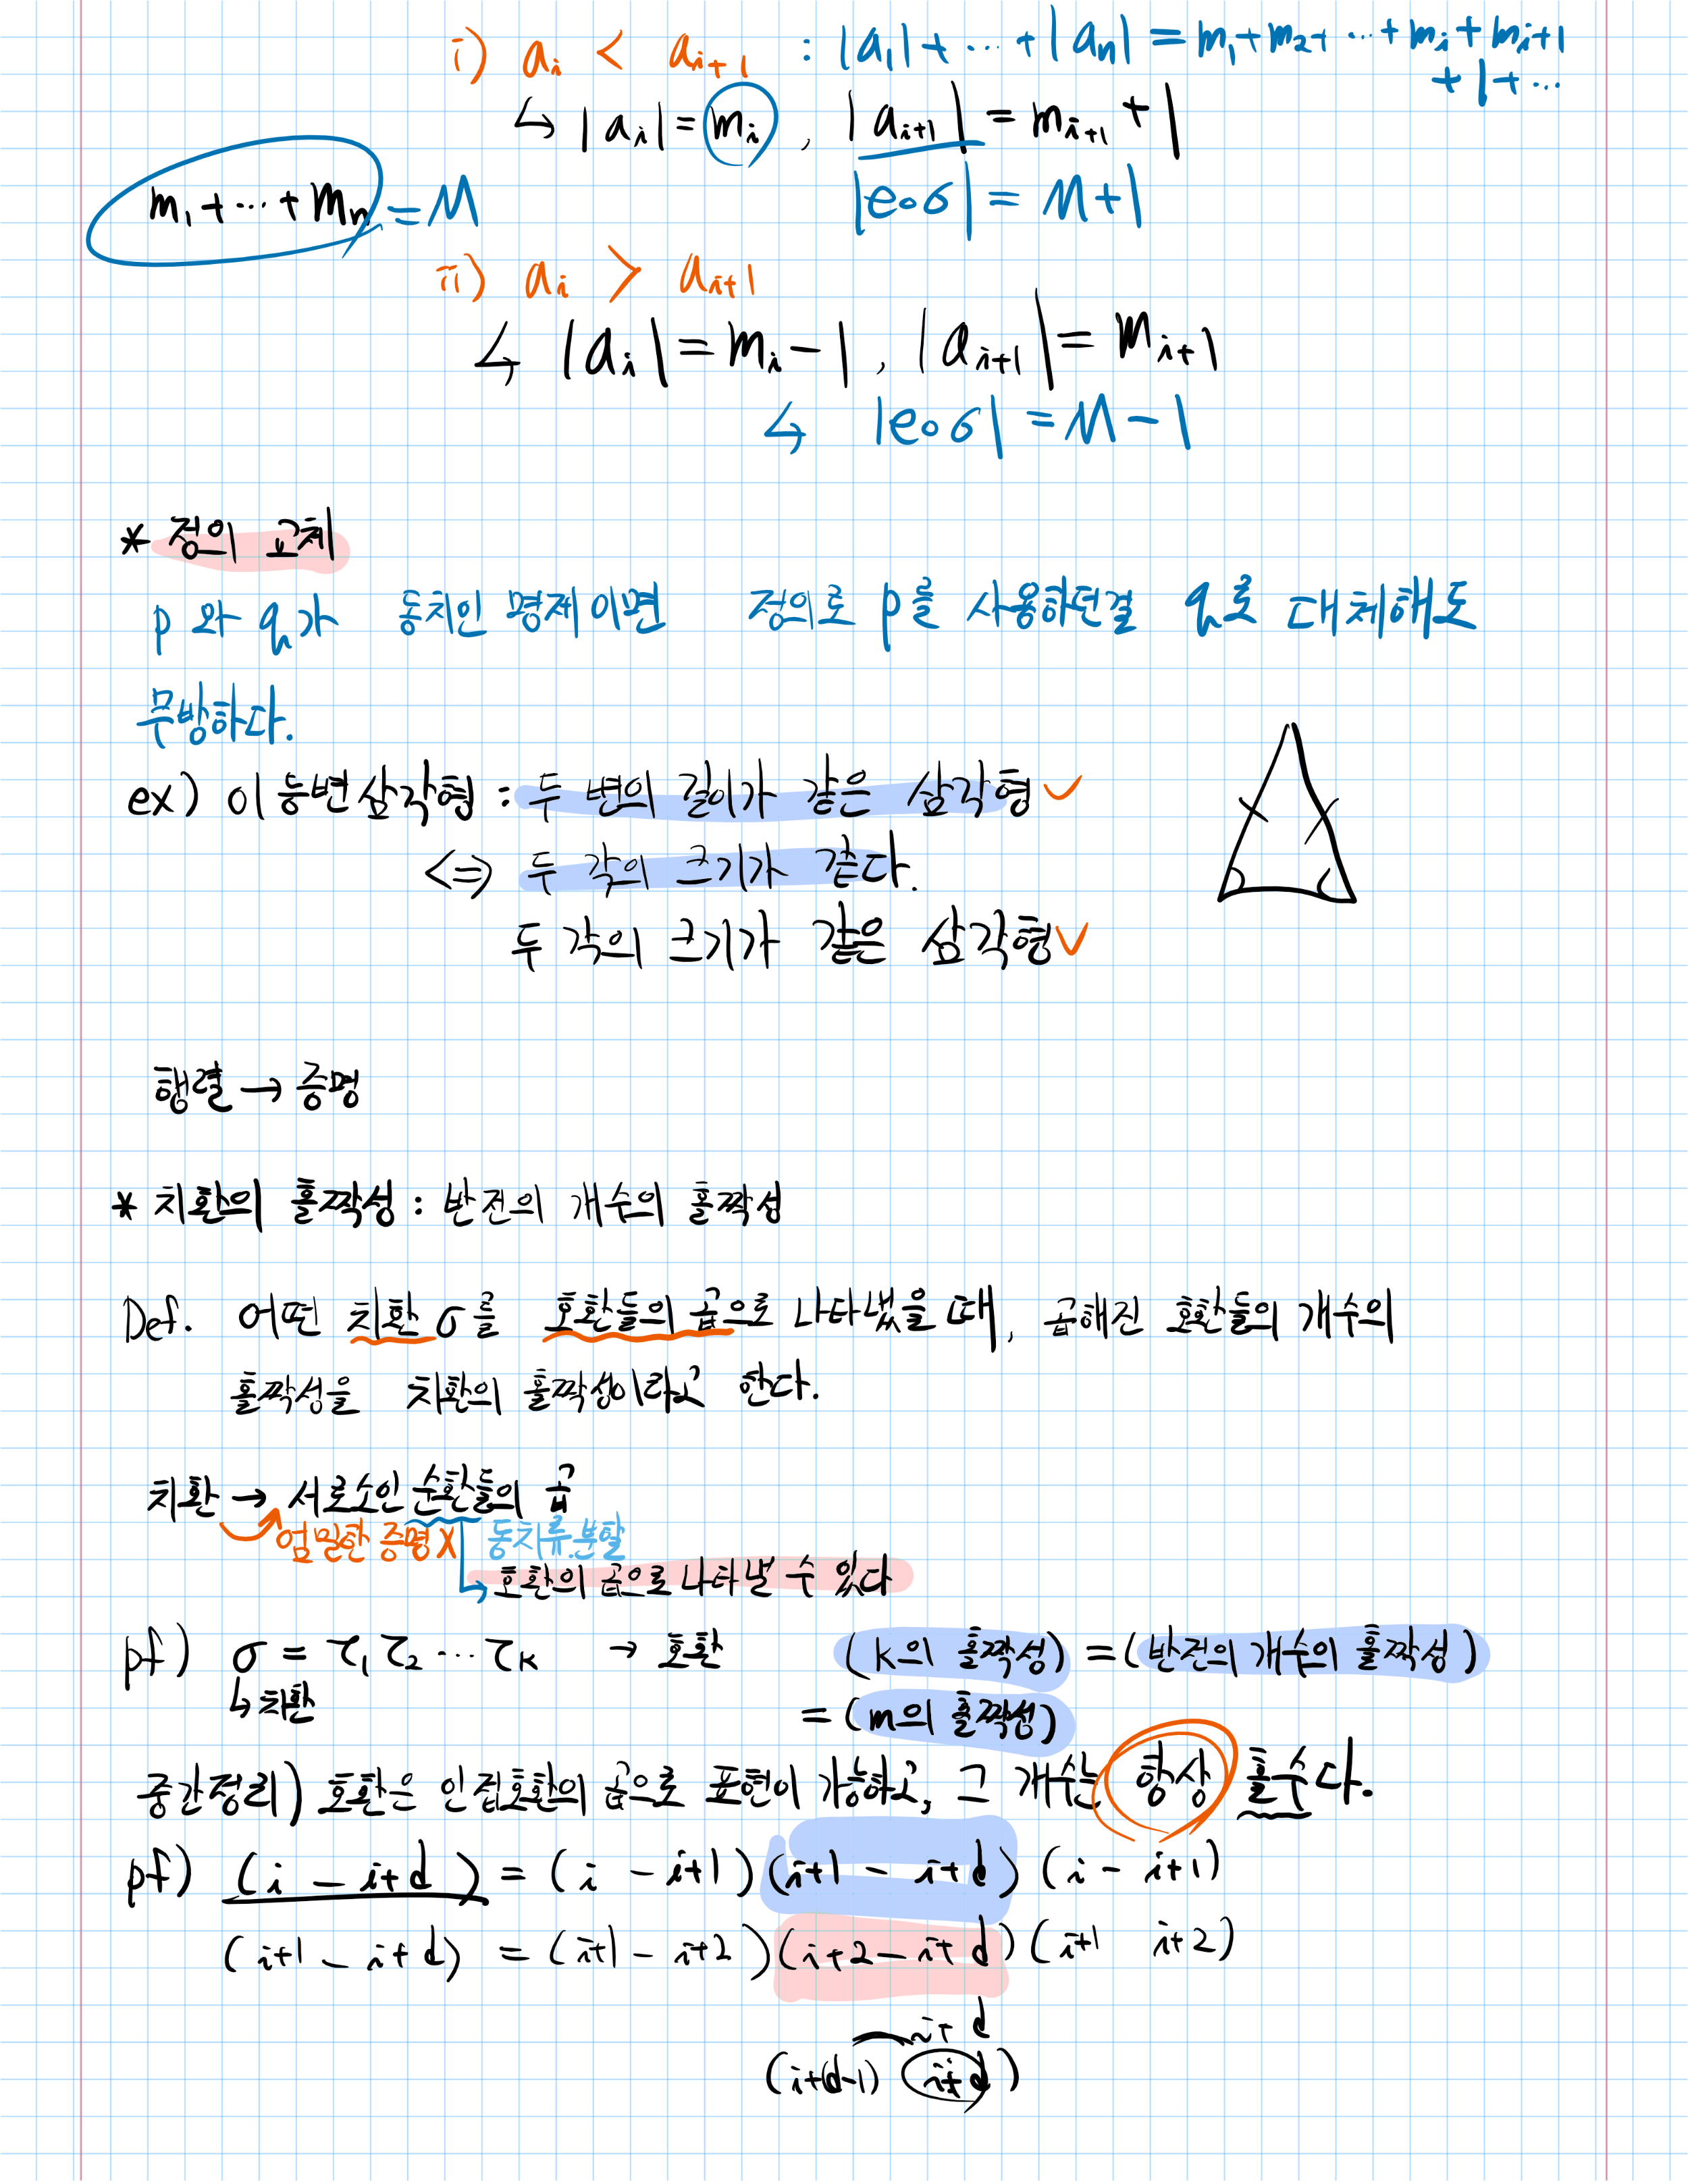 i) a_i < a_{i+1} : |a_1| + … + |a_n| = m_1 + m_2 + … + m_i + m_{i+1} + 1 + …
↳ |a_i| = m_i , |a_{i+1}| = m_{i+1} + 1
m_1 + … + m_n = M
|e∘σ| = M+1
ii) a_i > a_{i+1}
↳ |a_i| = m_i - 1 , |a_{i+1}| = m_{i+1}
↳ |e∘σ| = M - 1
* 정의 교체
p 와 q가 동치인 명제이면 정의로 p를 사용하던걸 q로 대체해도
무방하다.
ex) 이등변삼각형 : 두 변의 길이가 같은 삼각형 ✓
<=> 두 각의 크기가 같다.
두 각의 크기가 같은 삼각형 ✓
행렬 → 증명
* 치환의 홀짝성 : 반전의 개수의 홀짝성
Def. 어떤 치환 σ를 호환들의 곱으로 나타냈을 때, 곱해진 호환들의 개수의
홀짝성을 치환의 홀짝성이라고 한다.
치환 → 서로소인 순환들의 곱
엄밀한 증명 X 동치류.분할
↳ 호환의 곱으로 나타낼 수 있다
pf) σ = τ_1 τ_2 … τ_k → 호환 (k의 홀짝성) = (반전의 개수의 홀짝성)
↳ 치환 = (m의 홀짝성)
중간정리) 호환은 인접호환의 곱으로 표현이 가능하고, 그 개수는 항상 홀수다.
pf) (i - i+d) = (i - i+1)(i+1 - i+d)(i - i+1)
(i+1 - i+d) = (i+1 - i+2)(i+2 - i+d)(i+1 i+2)
i+d
(i+d-1) i+d)